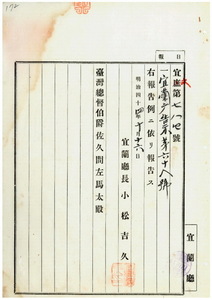 報日
宜庶第七八四號
一宜蘭廳報第六十八號
右報告例ニ依リ報告ス
明治四十四年十月十六日
宜蘭廳長小松吉久
臺灣總督伯爵佐久間左馬太殿
宜蘭廳